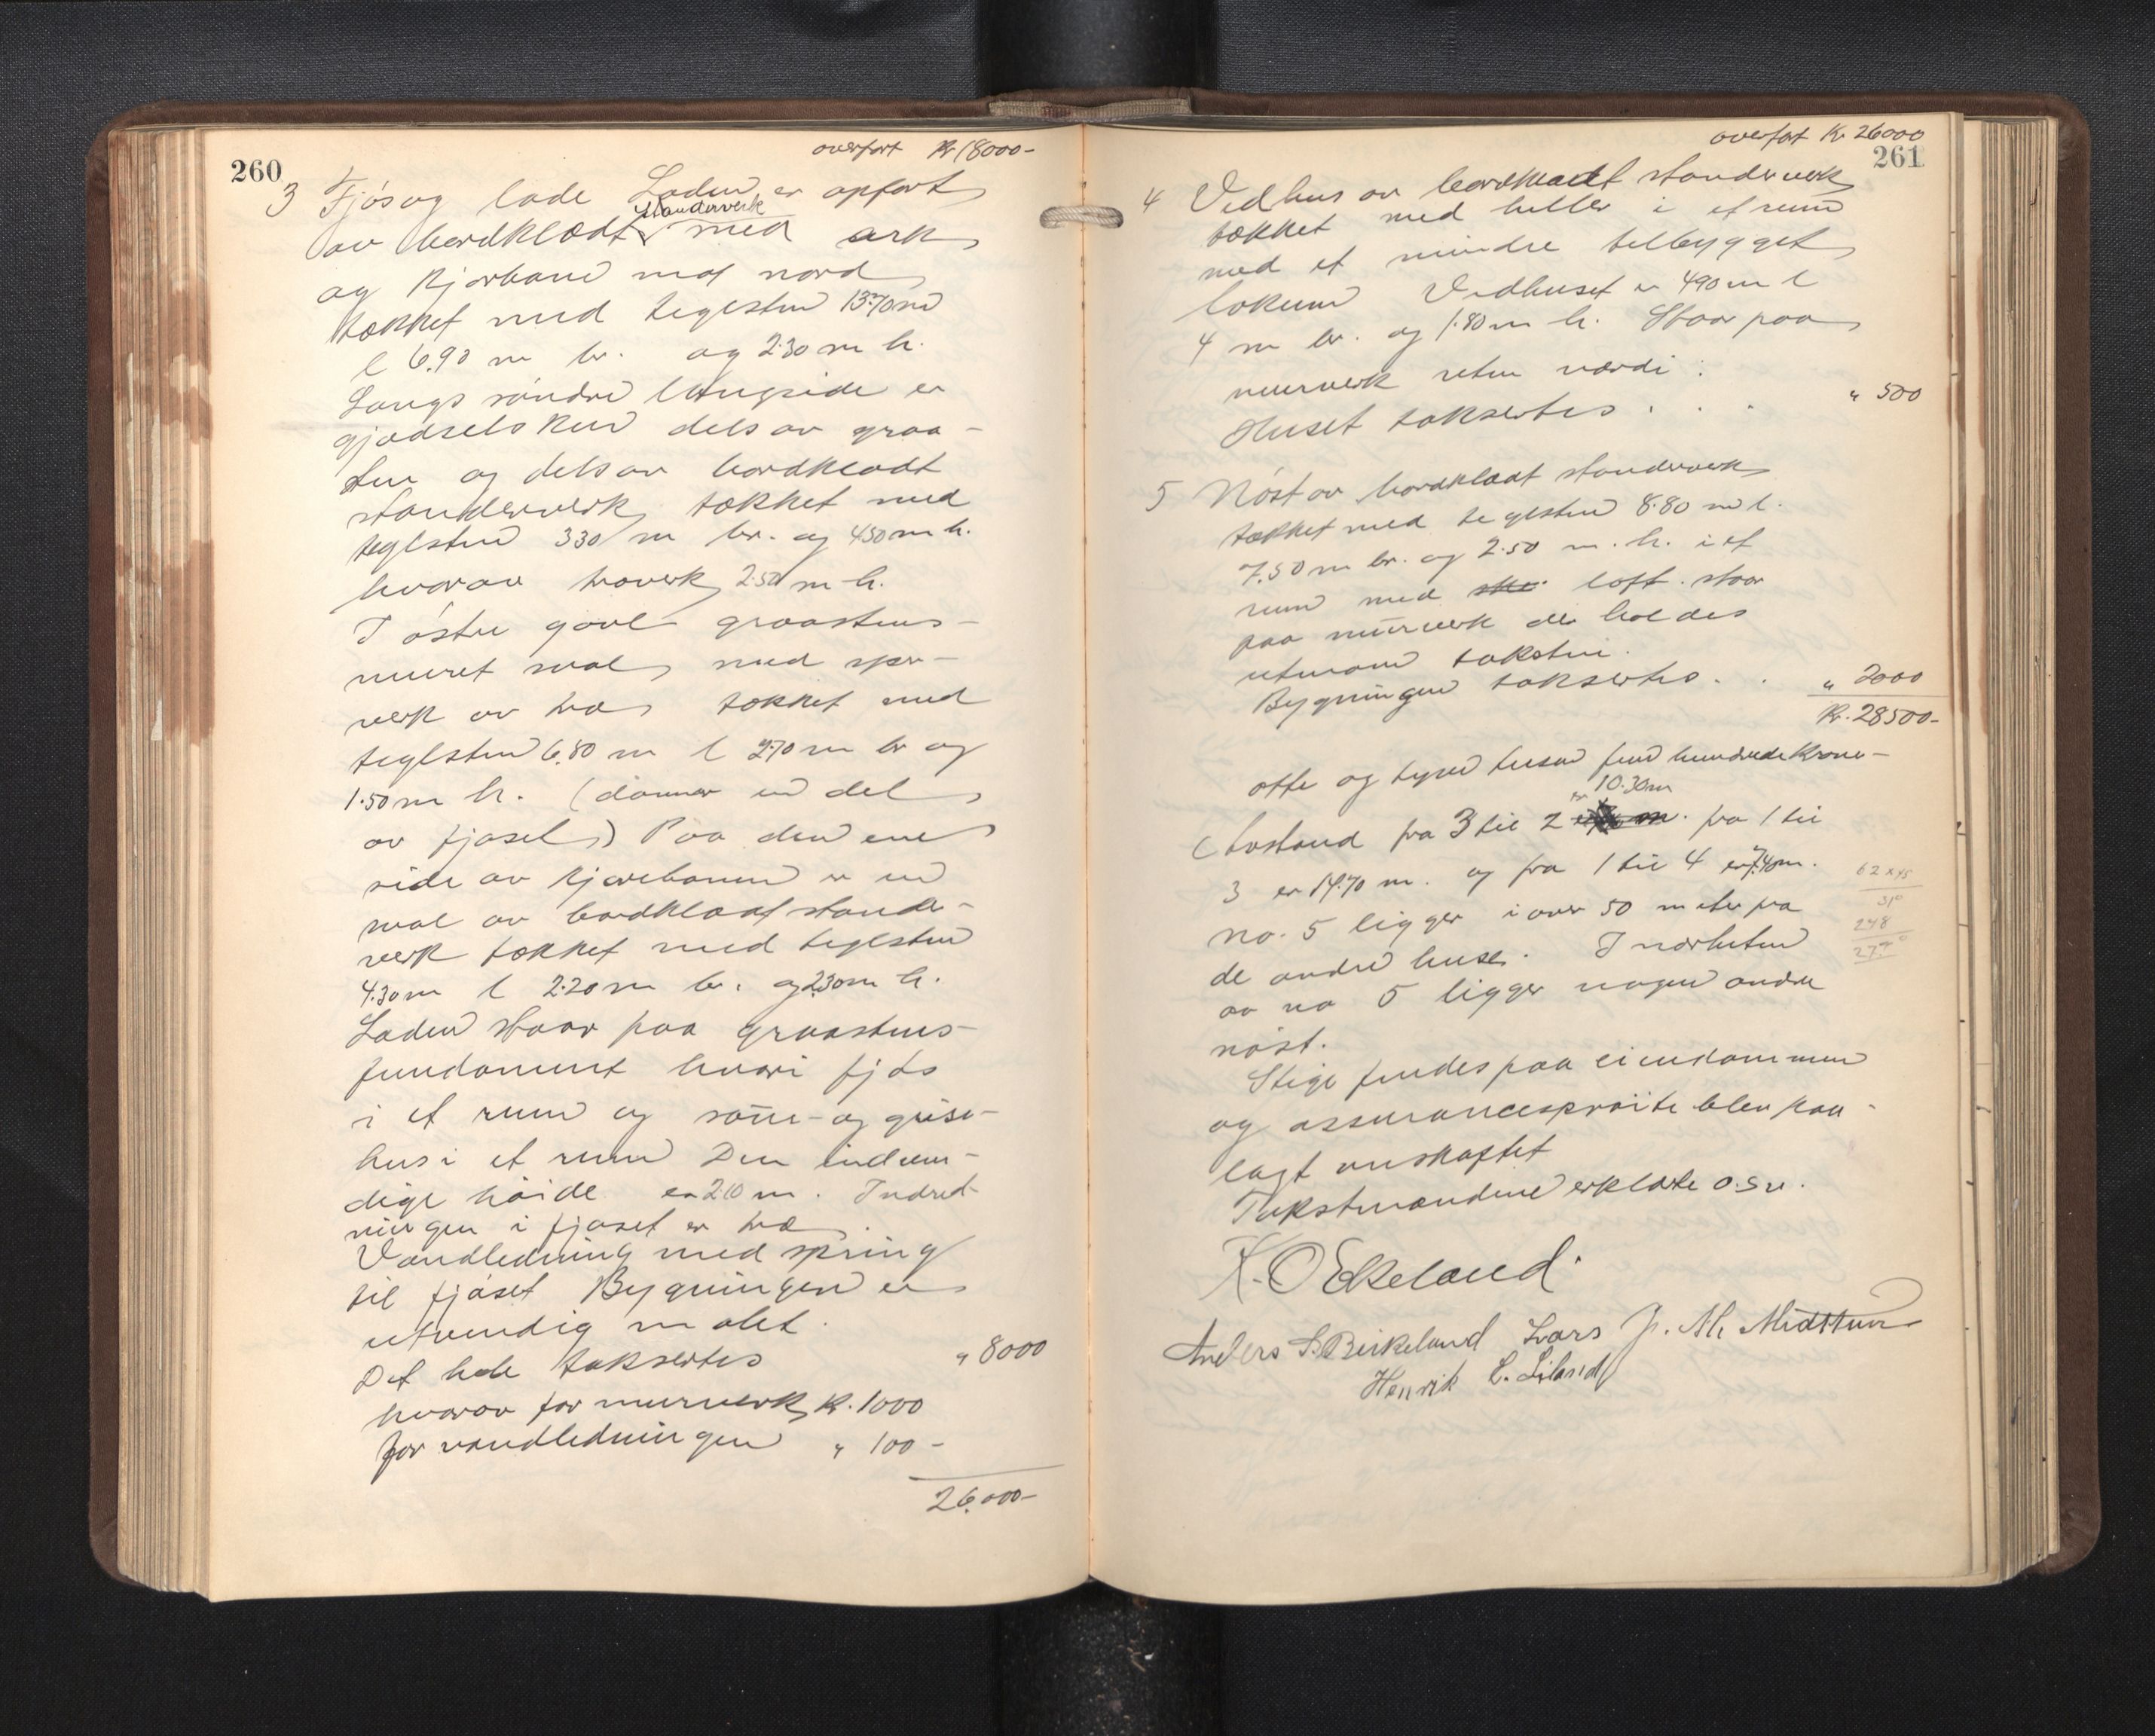 260
overført Kr 18000-
3 Fjøs og lade Laden er opført
av bordklædt standerverk med ark
og kjørbane mot nord
tækket med teglsten 13.70 m
l 6.90 m br. og 2.30 m h.
Langs søndre langside er
gjødselskur dels av graa-
sten og dels av bordklædt
standerverk tækket med
teglsten 330 m br. og 450 m h.
hvorav træverk 2.50 m h.
I østre gavl graastens-
muret sval med sper-
verk av træ tækket med
teglsten 6.80 m l 2.70 m br og
1.50 m h. (danner en del
av fjøset) Paa den ene
side av kjørebanen er en
sval av bordklædt stander-
verk tækket med teglsten
4.30 m l 2.20 m br. og 2.30 m h.
Laden staar paa graastens-
fundament hvori fjøs
i et rum og saue- og grise-
hus i et rum Den indven-
dige høide er 2.10 m. Indred-
ningen i fjøset er træ.
Vandledning med spring
til fjøset Bygningen er
utvendig malet.
Det hele takseres " 8000
hvorav for murverk Kr. 1000
for vandledningen " 100-
26.000-
overført Kr 26000
261
4 Vedhus av bordklædt standerverk
tækket med heller i et rum
med et mindre tilbygget
lokum Vedhuset er 490 m l
4 m br. og 1.80 m h. Staar paa
murverk uten værdi.
Huset taksertes . . . " 500
5 Nøst av bordklædt standerverk
tækket med teglsten 8.80 m l.
7.50 m br. og 2.50 m. h. i et
rum med loft. staar
paa murverk der holdes
utenom taksten.
Bygningen taksertes . . " 2000
Kr. 28500-
otte og tyve tusen fem hundrede Kroner-
Avstand fra 3 til 2 er 10.30 m. fra 1 til
3 er 14.70 m. og fra 1 til 4 er 7.40 m.
62 x 45
310
248
2790
no. 5 ligger i over 50 meter fra
de andre huse. I nærheten
av no 5 ligger nogen andre
nøst.
Stige findes paa eiendommen
og assurancesprøite blev paa-
lagt anskaffet
Takstmændene erklærte o.s.v.
K. O Ekeland.
Anders S. Birkeland Lars J. M. Midttun
Henrik E. Liland